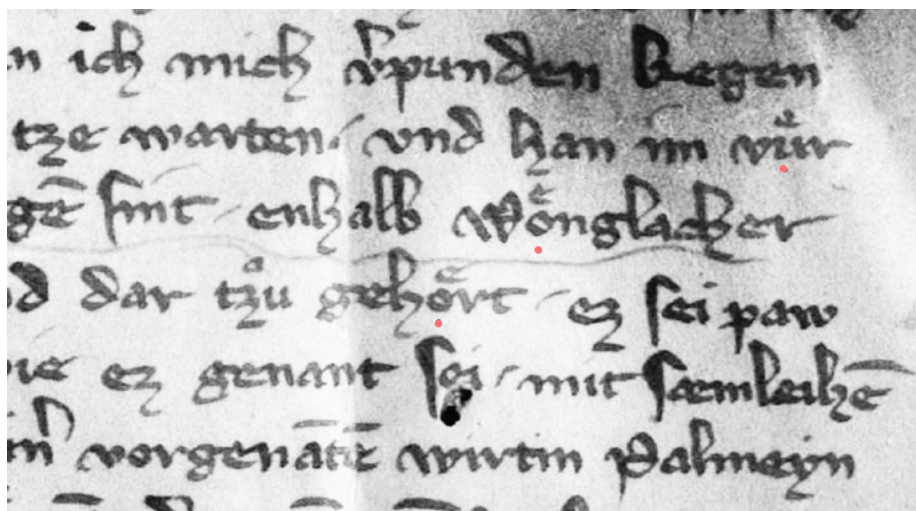 n ich mich v̓punden kegen
tze warten · vnd han im vuͤr
gē sint · enhalb Woͤnglacher
d dar tzuͦ gehoͤrt · ez sei paw
ie ez genant sei · mit sæmleihē
vorgenātē wirtin Palmeyn